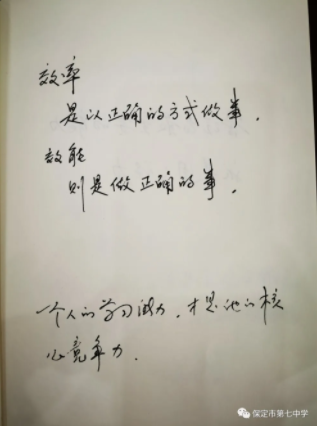 效率
是以正确的方式做事.
效能
则是做正确的事.
一个人的学习能力,才是他的核
心竞争力.
保定市第七中学